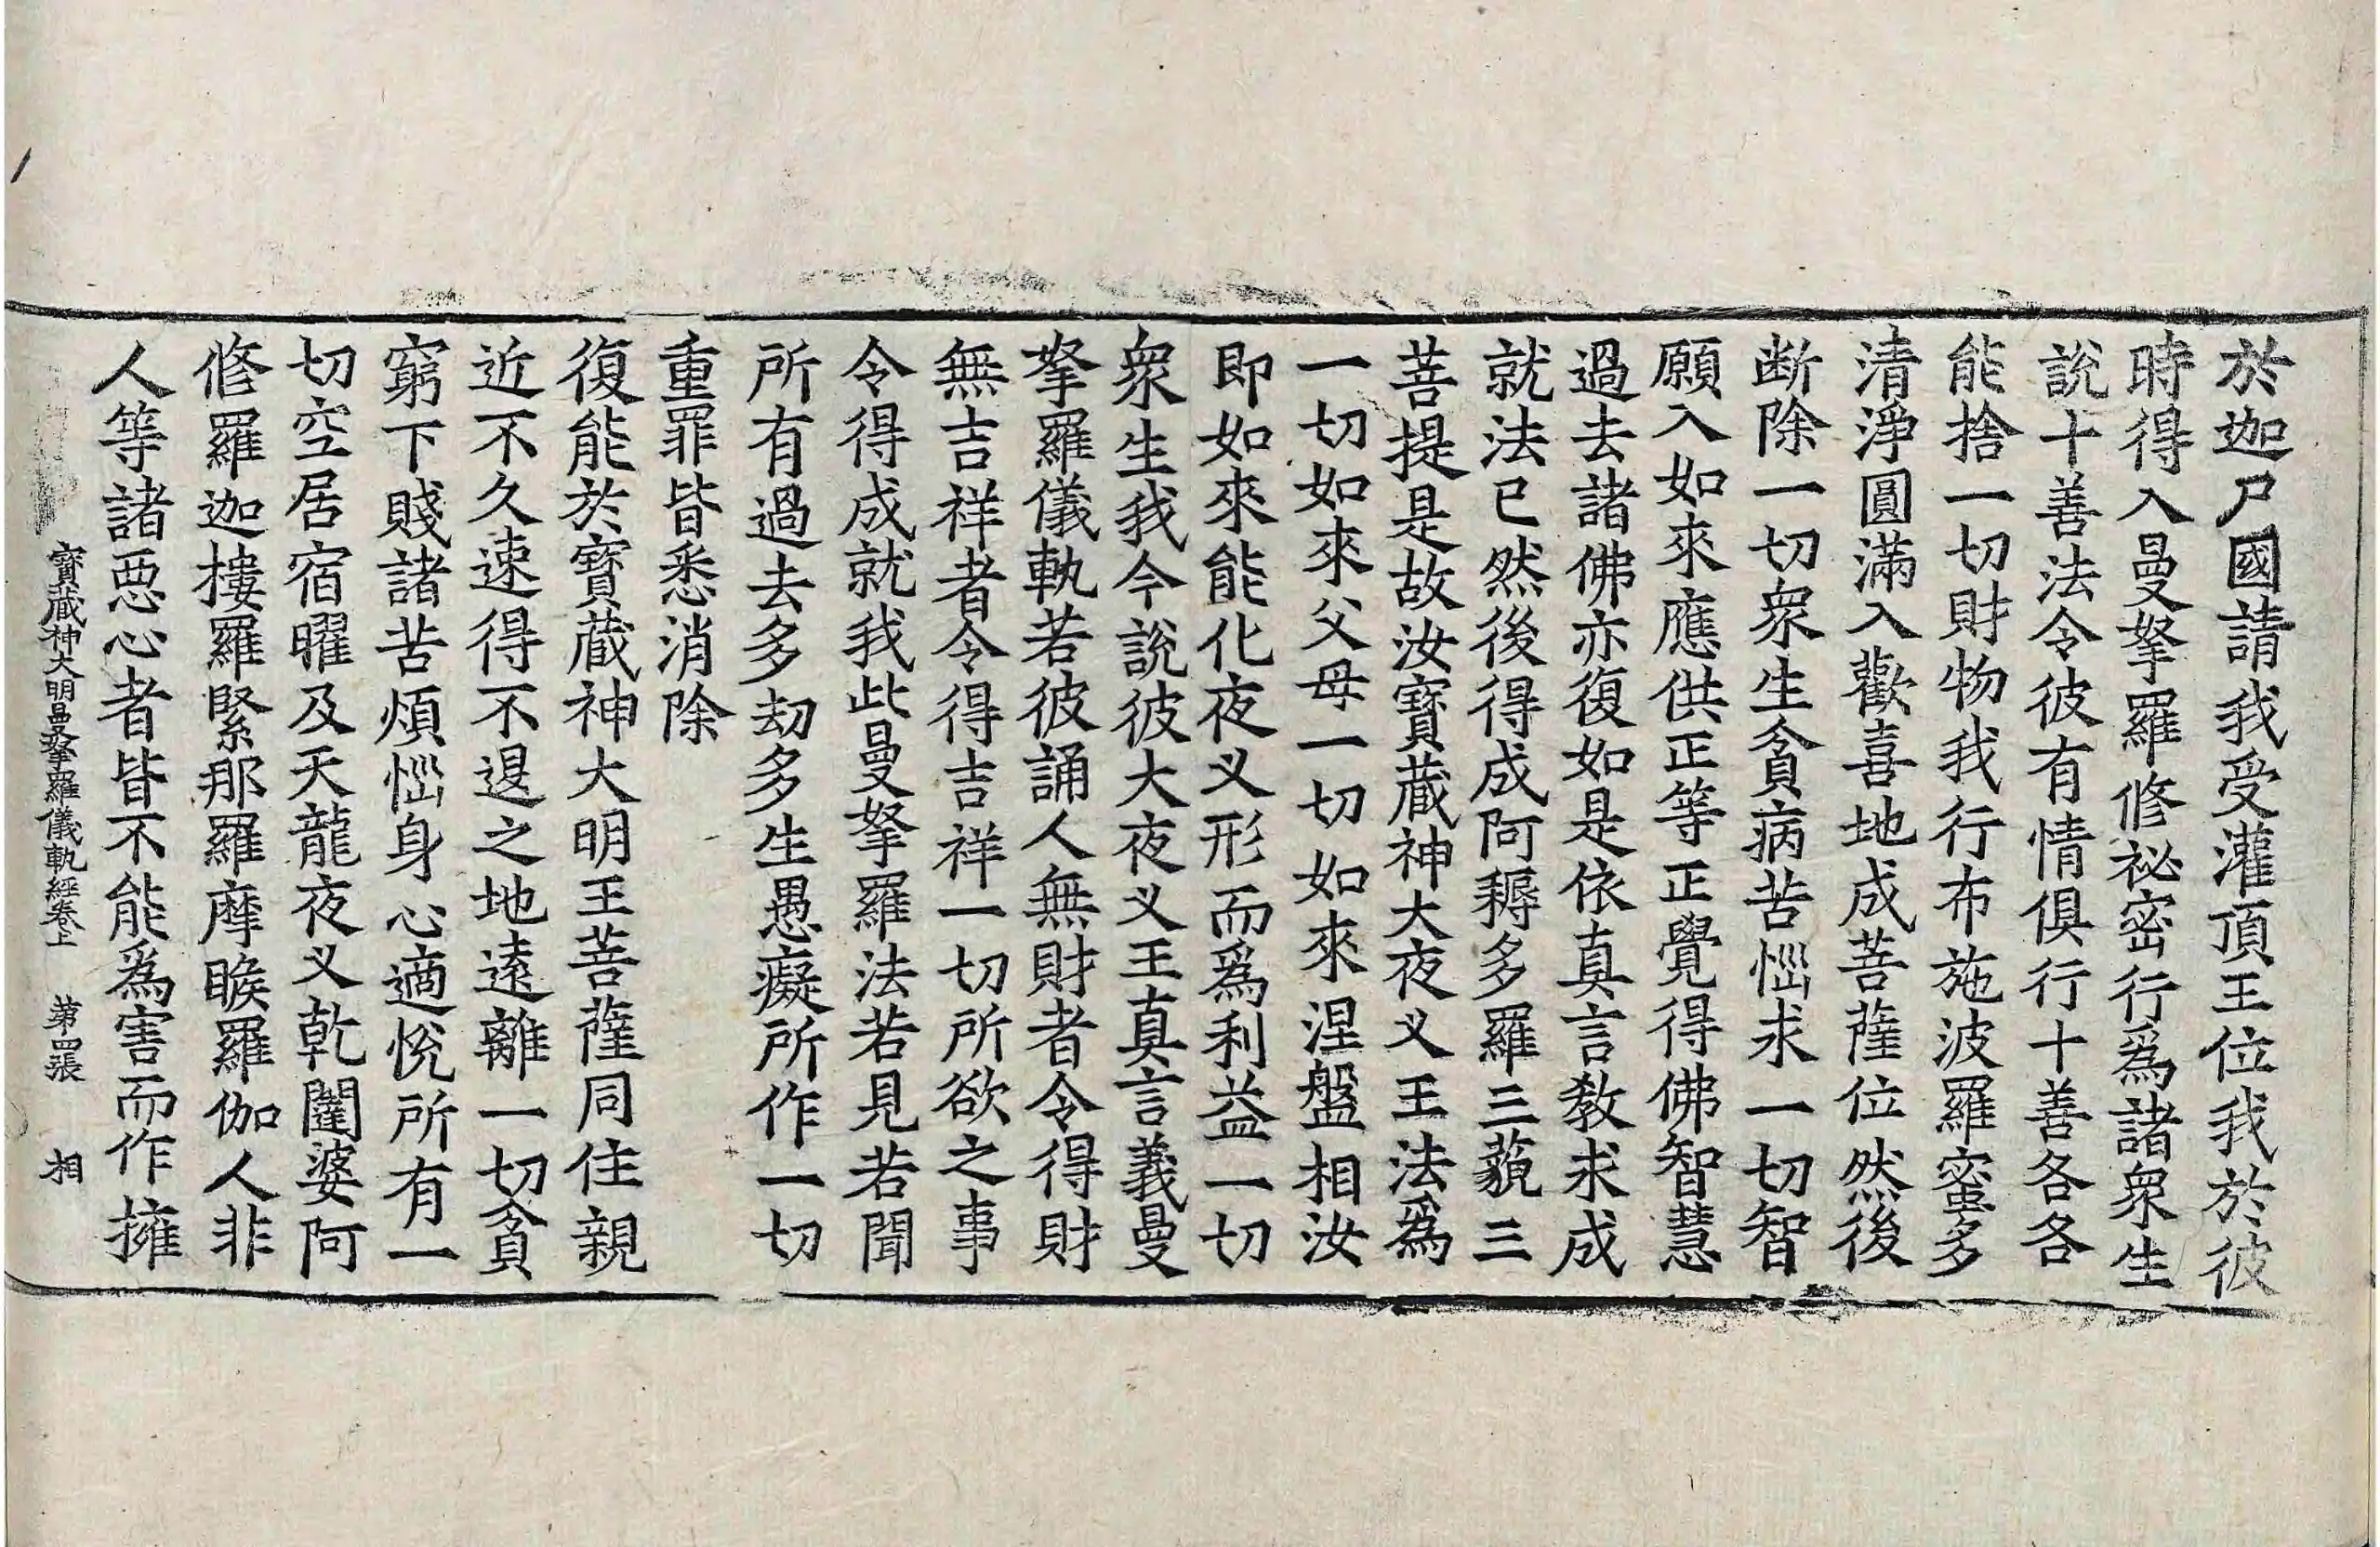 於迦尸國請我受灌頂王位我於彼
時得入曼拏羅修祕密行爲諸衆生
說十善法令彼有情俱行十善各各
能捨一切財物我行布施波羅蜜多
清淨圓滿入歡喜地成菩薩位然後
断除一切衆生貪病苦惱求一切智
願入如來應供正等正覺得佛智慧
過去諸佛亦復如是依真言教求成
就法已然後得成阿耨多羅三藐三
菩提是故汝寶藏神大夜叉王法爲
一切如來父母一切如來涅盤相汝
即如來能化夜叉形而爲利益一切
衆生我今說彼大夜叉王真言義曼
拏羅儀軌若彼誦人無財者令得財
無吉祥者令得吉祥一切所欲之事
令得成就我此曼拏羅法若見若聞
所有過去多劫多生愚癡所作一切
重罪皆悉消除
復能於寶藏神大明王菩薩同住親
近不久速得不退之地遠離一切貧
窮下賤諸苦煩惱身心適悅所有一
切空居宿曜及天龍夜叉乾闥婆阿
修羅迦樓羅緊那羅摩睺羅伽人非
人等諸惡心者皆不能爲害而作擁
寶藏神大明曼拏羅儀軌經卷上 第四張 相